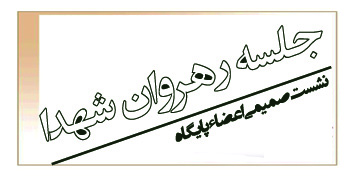 جلسه رهروان شهدا
نشست صمیمی اعضاء پایگاه